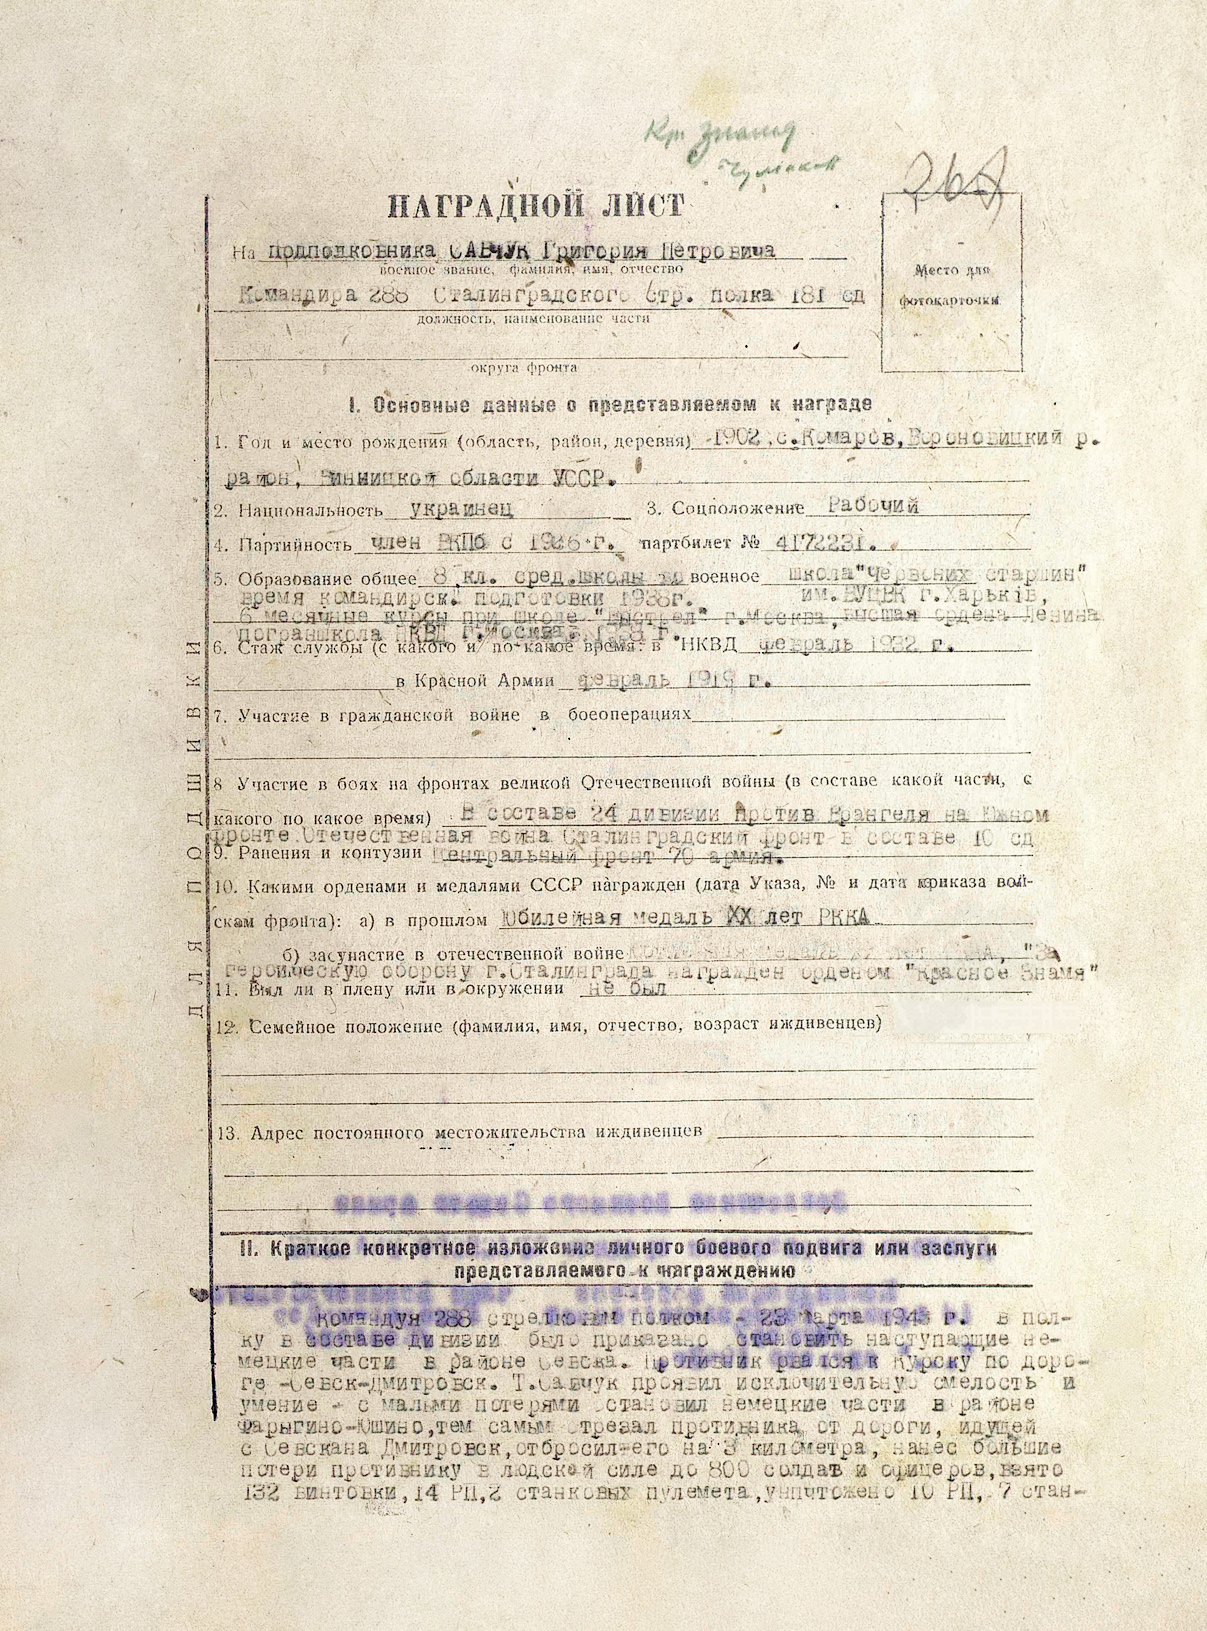 Кр. Знамя
267
НАГРАДНОЙ ЛИСТ
На подполковника САВЧУК Григория Петровича
военное звание, фамилия, имя, отчество
Командира 288 Сталинградского Стр. полка 181 сд
должность, наименование части
округа фронта
Место для
фотокарточки
I. Основные данные о представляемом к награде
1. Год и место рождения (область, район, деревня) -1902,с.Комаров,Вороновицкий р.
район, Винницкой области УССР.
2. Национальность украинец 3. Соцположение Рабочий
4. Партийность член ВКПб с 1926 г. партбилет № 4172231.
5. Образование общее 8 кл. сред.школы военное школа"Червоних старшин"
время командирск. подготовки 1938г. им.ВУЦВК г.Харьків,
6 месячные курсы при школе "Выстрел" г.Москва,высшая ордена Ленина
пограншкода НКВД г.Москва, г.
6. Стаж службы (с какого и по какое время: в НКВД февраль 1932 г.
в Красной Армии февраль 1919 г.
7. Участие в гражданской войне в боеоперациях
8 Участие в боях на фронтах великой Отечественной войны (в составе какой части, с
какого по какое время) В составе 24 дивизии Против Врангеля на Южном
фронте.Отечественная война Сталинградский фронт в составе 10 сд
9. Ранения и контузии Центральный фронт 70 армия.
10. Какими орденами и медалями СССР награжден (дата Указа, № и дата приказа вой-
скам фронта): а) в прошлом Юбилейная медаль XX лет РККА
б) засучастие в отечественной войне "За
героическую оборону г.Сталинграда награжден орденом "Красное Знамя"
11. Был ли в плену или в окружении не был
12. Семейное положение (фамилия, имя, отчество, возраст иждивенцев)
13. Адрес постоянного местожительства иждивенцев
ДЛЯ ПОДШИВКИ
II. Краткое конкретное изложение личного боевого подвига или заслуги
представляемого к награждению
Командуя 288 стрелковым полком - 23 марта 1943 г. в пол-
ку в составе дивизии было приказано становить наступающие не-
мецкие части в районе Севска. Противник рвался к Курску по доро-
ге -Севск-Дмитровск. Т.Савчук проявил исключительную смелость и
умение - с малыми потерями становил немецкие части в районе
Фарыгино-Юшино,тем самым трезал противника от дороги, идущей
с Севскана Дмитровск,отбросил-его на 3 километра, нанес большие
потери противнику в людской силе до 800 солдат и офицеров,взято
132 винтовки,14 РП,2 станковых пулемета,уничтожено 10 РП, 7 стан-